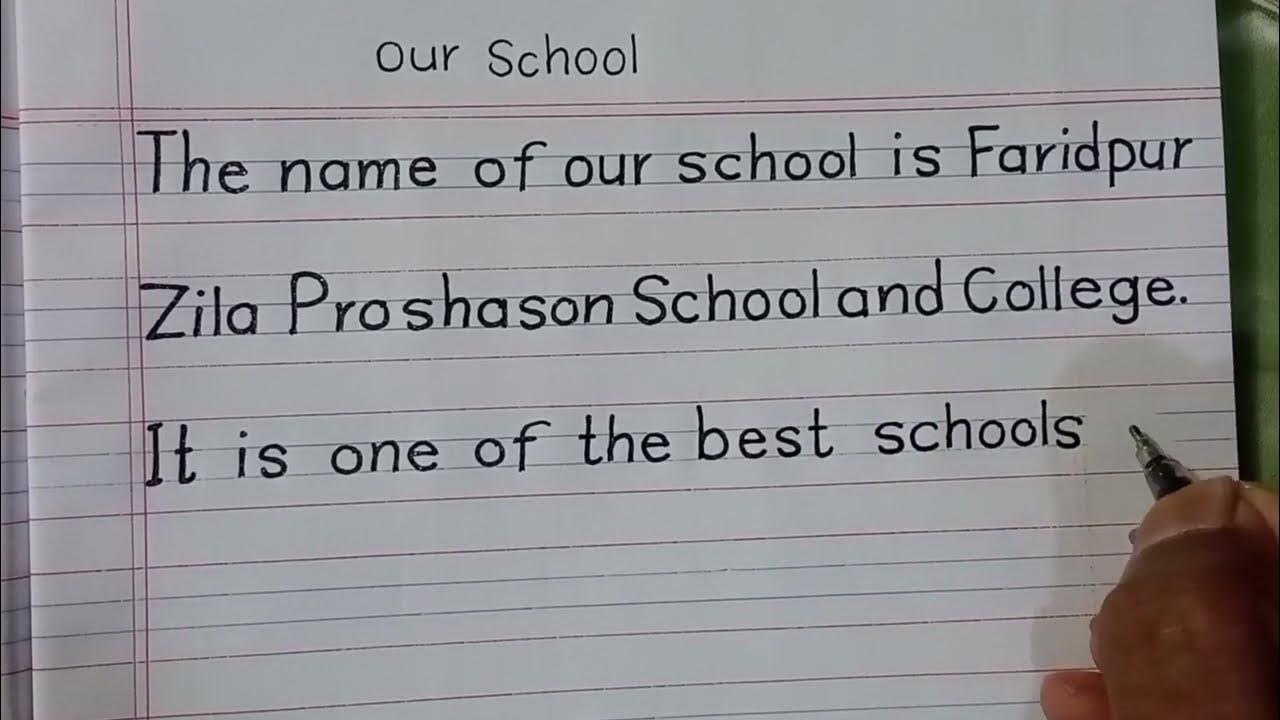 Our School
The name of our school is Faridpur
Zila Proshason School and College.
It is one of the best schools